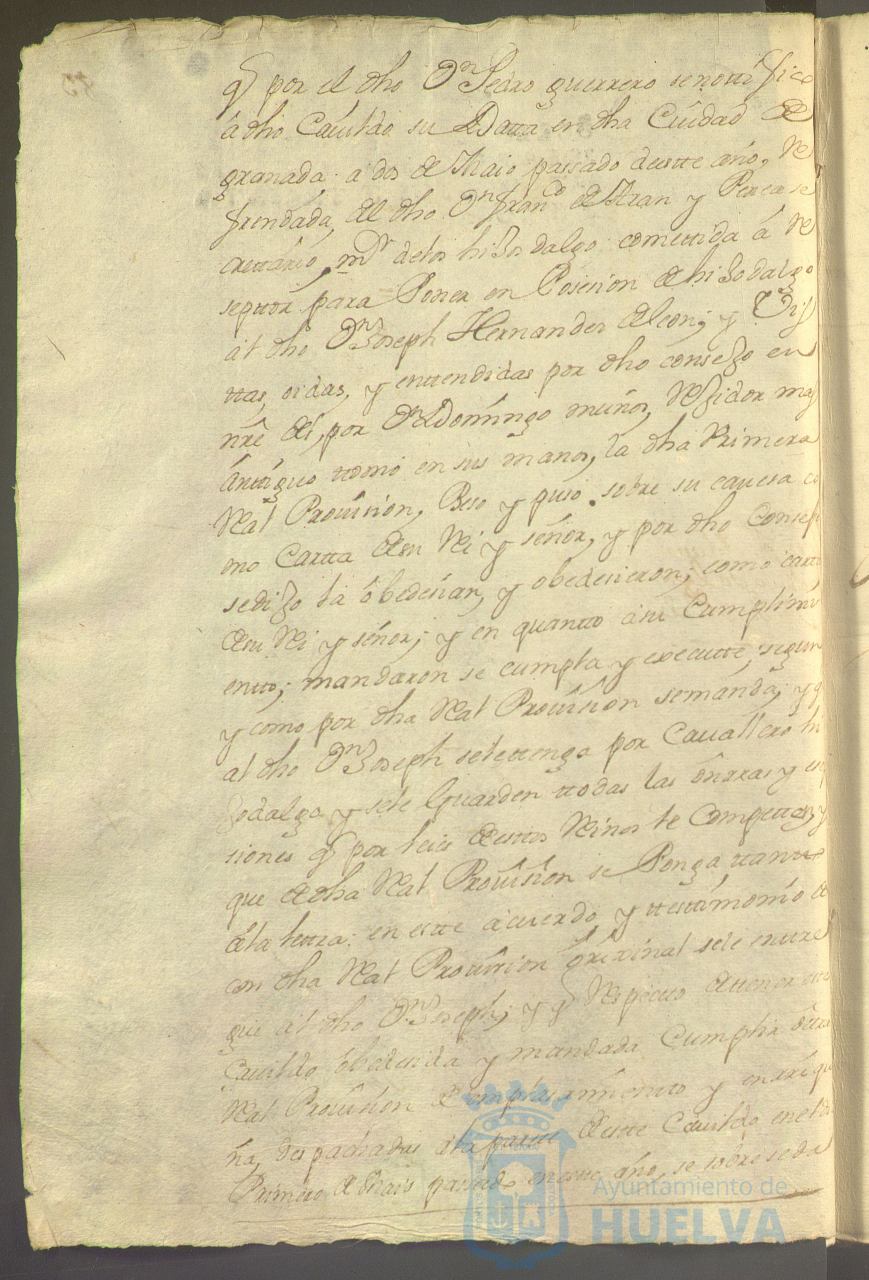 q por el dho Dn Pedro guerrero se notifico
á dho Cauildo su Datta en dha Ciudad de
granada, a dos de Maio passado deeste año, Re
frendada, del dho Dn franco de Aran y Perea se
crettario, mor delos hijos dalgo comettida á Re
septtor para Poner en Posesion de hijo dalgo
al dho Dn Joseph Hernandes de leon; y Vis
ttas, oidas, y enttendidas por dho consejo en
nre del, por Dn Domingo muños, Rejidor mas
Anttiguo ttomó en sus manos, la dha Primera
Real Prouision, Beso y puso sobre su cauesa co
mo Cartta de su Rei y señor, y por dho Consejo
se dijo la obedesian, y obedesieron; como cartta
de su Rei y señor; y en quantto a su Cumplimi
entto; mandaron se cumpla y executte, segun
y como por dha Real Prouision se manda; y q
al dho Dn Joseph se le ttenga por Cauallero hi
jodalgo y se le Guarden ttodas las onrras y
siones q por leies de esttos Reinos le Compettan, y
que de dha Real Prouision se Ponga ttantto
a la lettra en estte acuerdo y ttesttimonio de
con dha Real Prouision orixinal se le enttre
gue al dho Dn Joseph; y Respecto
Cauildo obedesida y mandada Cumplir
Real Prouision de emplasamientto y
ña, despachadas a la partte de estte Cauildo en el dia
Primero de Maio passado en estte año, se sobre se da
Ayuntamiento de
HUELVA